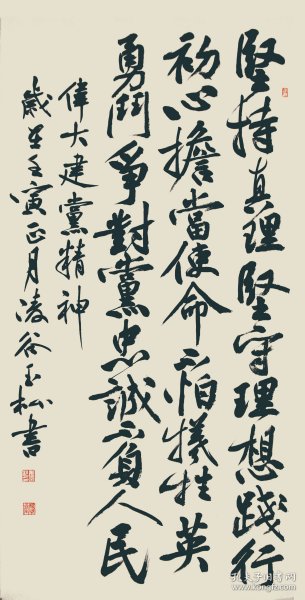 堅持真理堅守理想踐行
初心擔當使命不怕犧牲英
勇鬥爭對黨忠誠不負人民
偉大建黨精神
歲在壬寅正月凌谷玉松書
孔夫子旧书网
www.kongfz.com